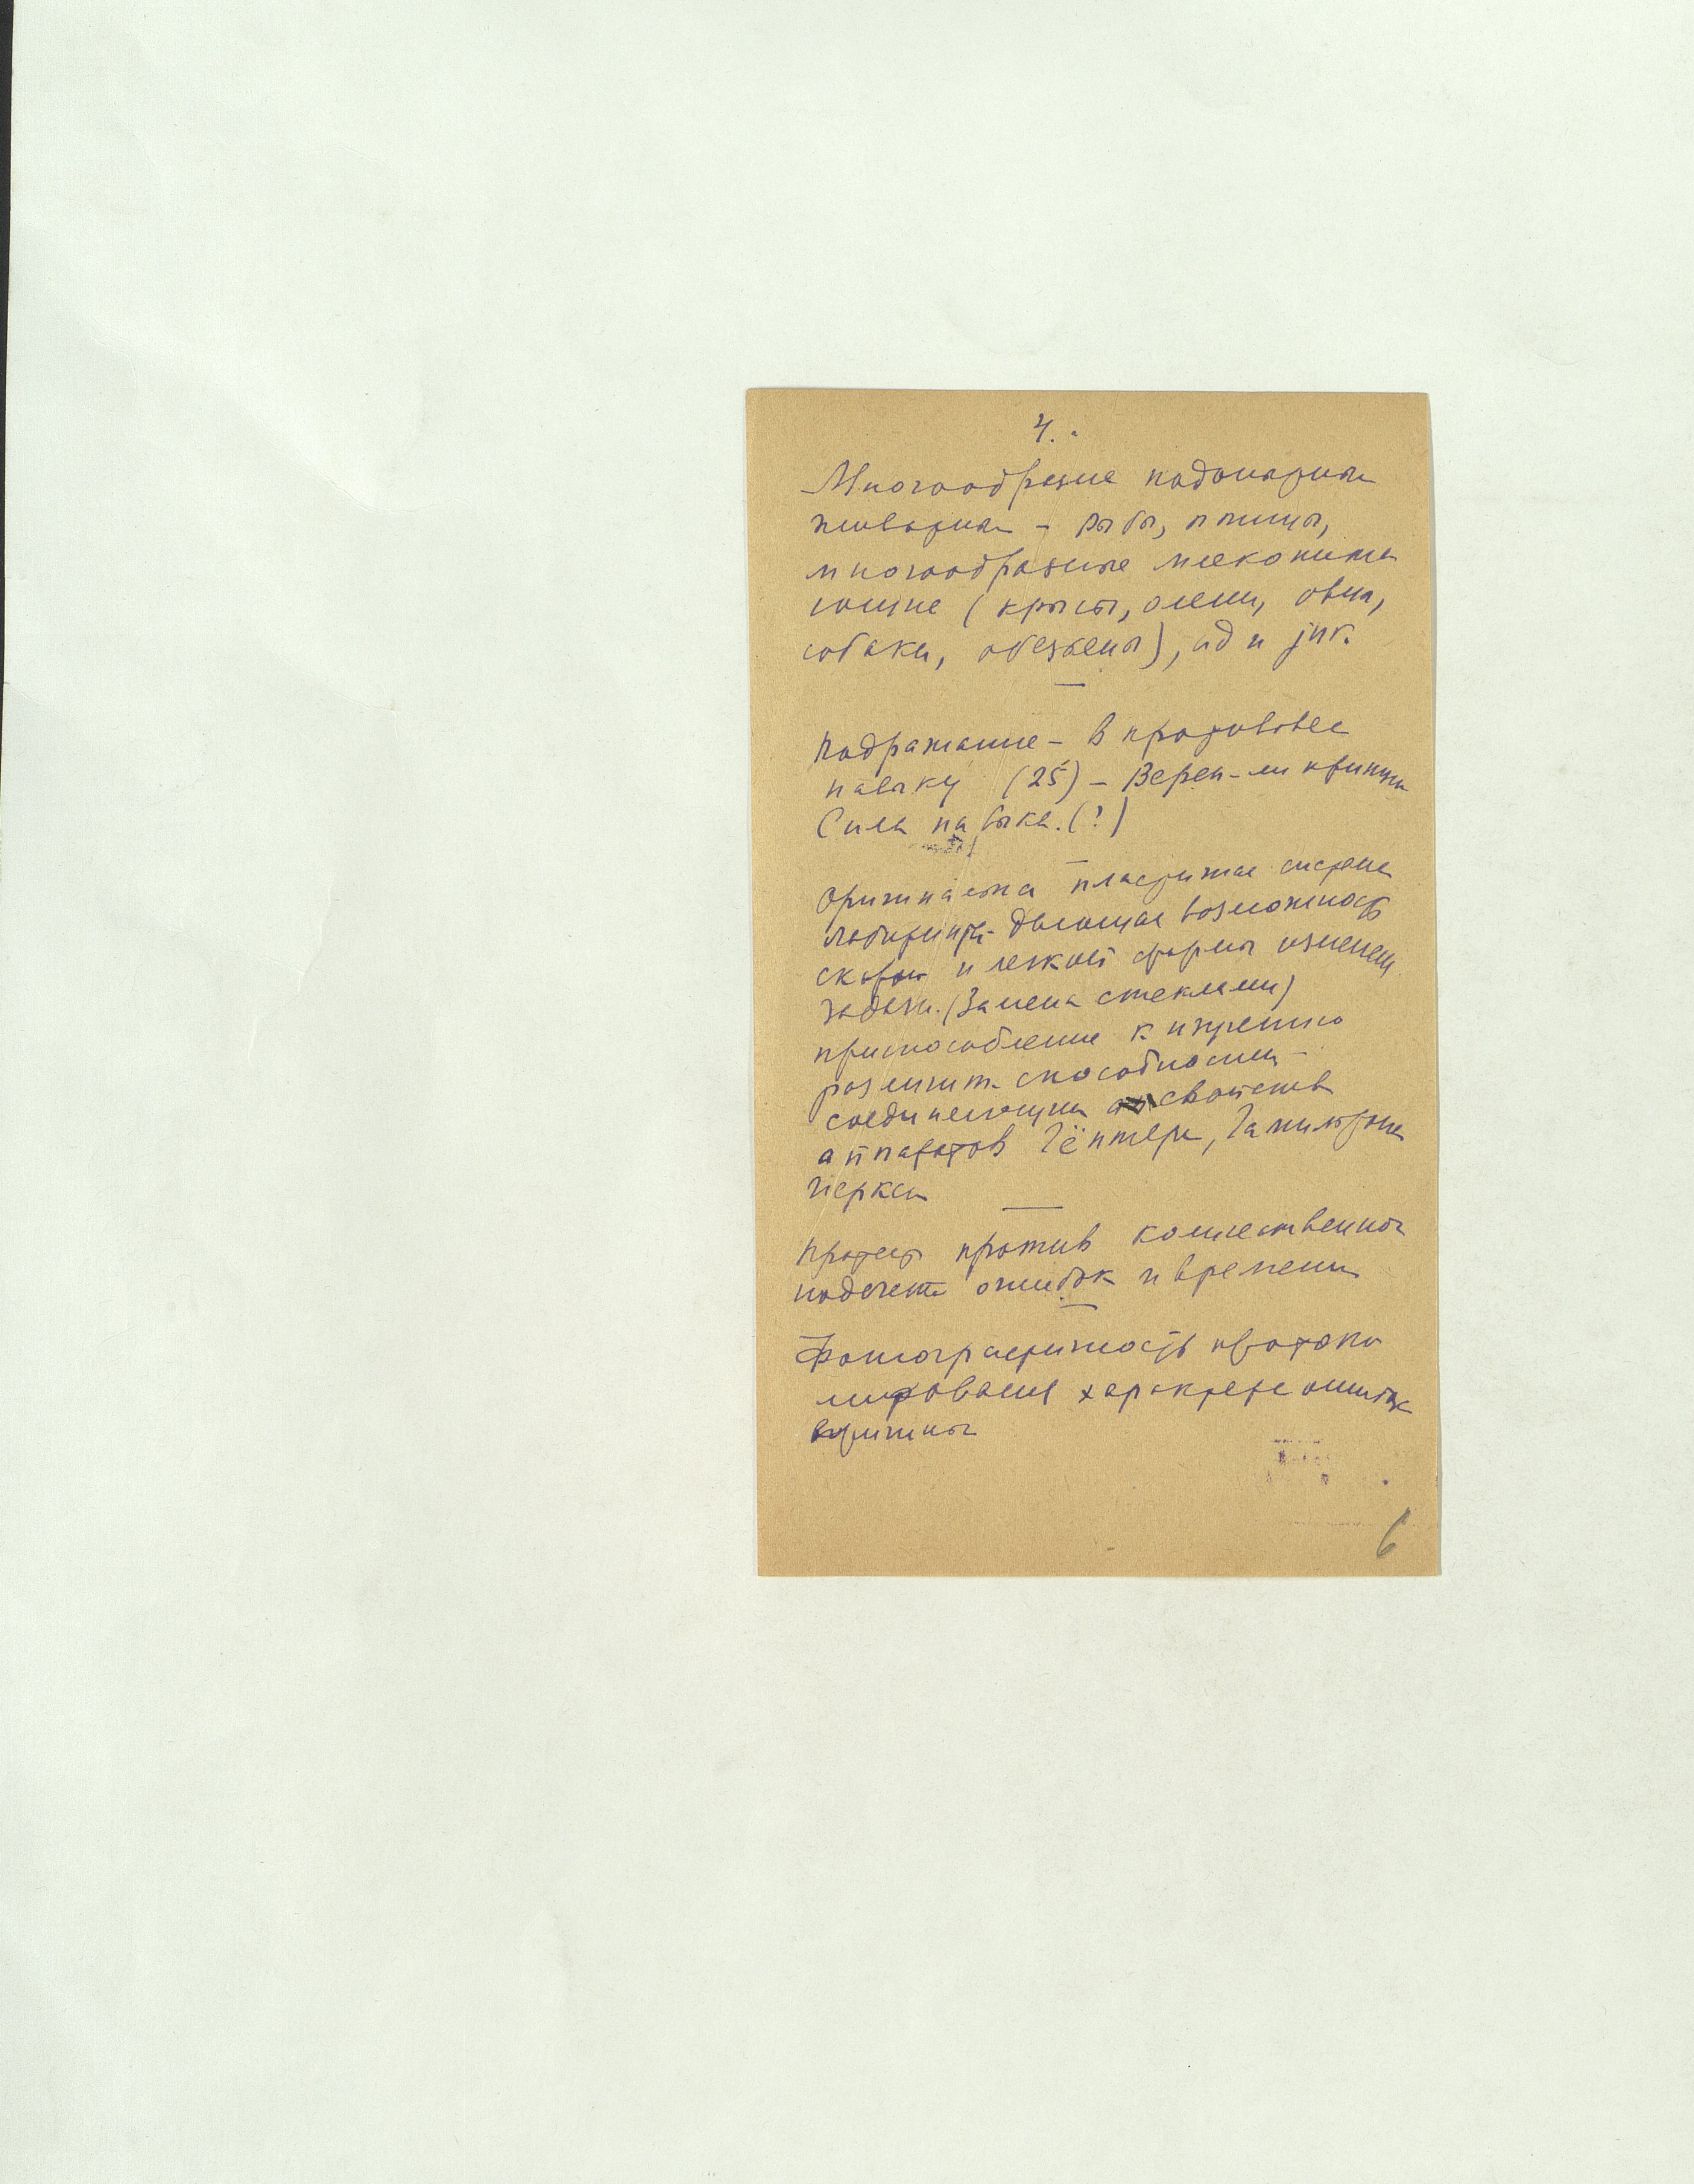 4.
Многообразие подопытных
животных - рыбы, птицы,
многообразные млекопита
ющие (крысы, олени, овца,
собаки, обезьены),
Подражание - в противовес
навыку (25) - Верен-ли принцип
Сила навыка. (?)
Оригинальна пластичная система
лабиринта дающая возможность
скорой и легкой формы изменен
задачи. (Замена стеклами)
приспособление к изучению
различн. способностей -
соединяющих свойства
аппаратов Гёнтера, Гамильтона
Иеркса
Протест против количественного
подсчета ошибок и времени
Фотографичность протоко
лирования характера ошибок
6